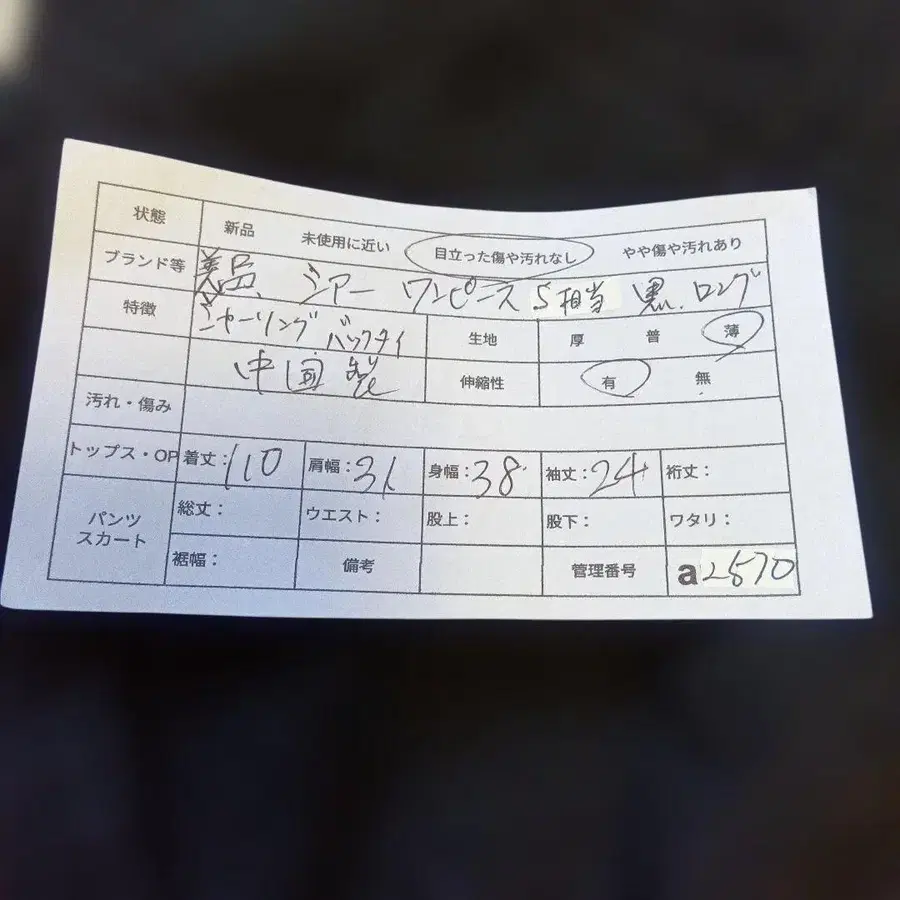 状態 新品 未使用に近い 目立った傷や汚れなし やや傷や汚れあり
ブランド等 美品、シアー ワンピース S相当 黒、ロング
特徴 シャーリング バックタイ 生地 厚 普 薄
中国製 伸縮性 有 無
汚れ・傷み
トップス・OP 着丈:110 肩幅:31 身幅:38 袖丈:24 裄丈:
パンツ スカート 総丈: ウエスト: 股上: 股下: ワタリ:
裾幅: 備考 管理番号 a2570